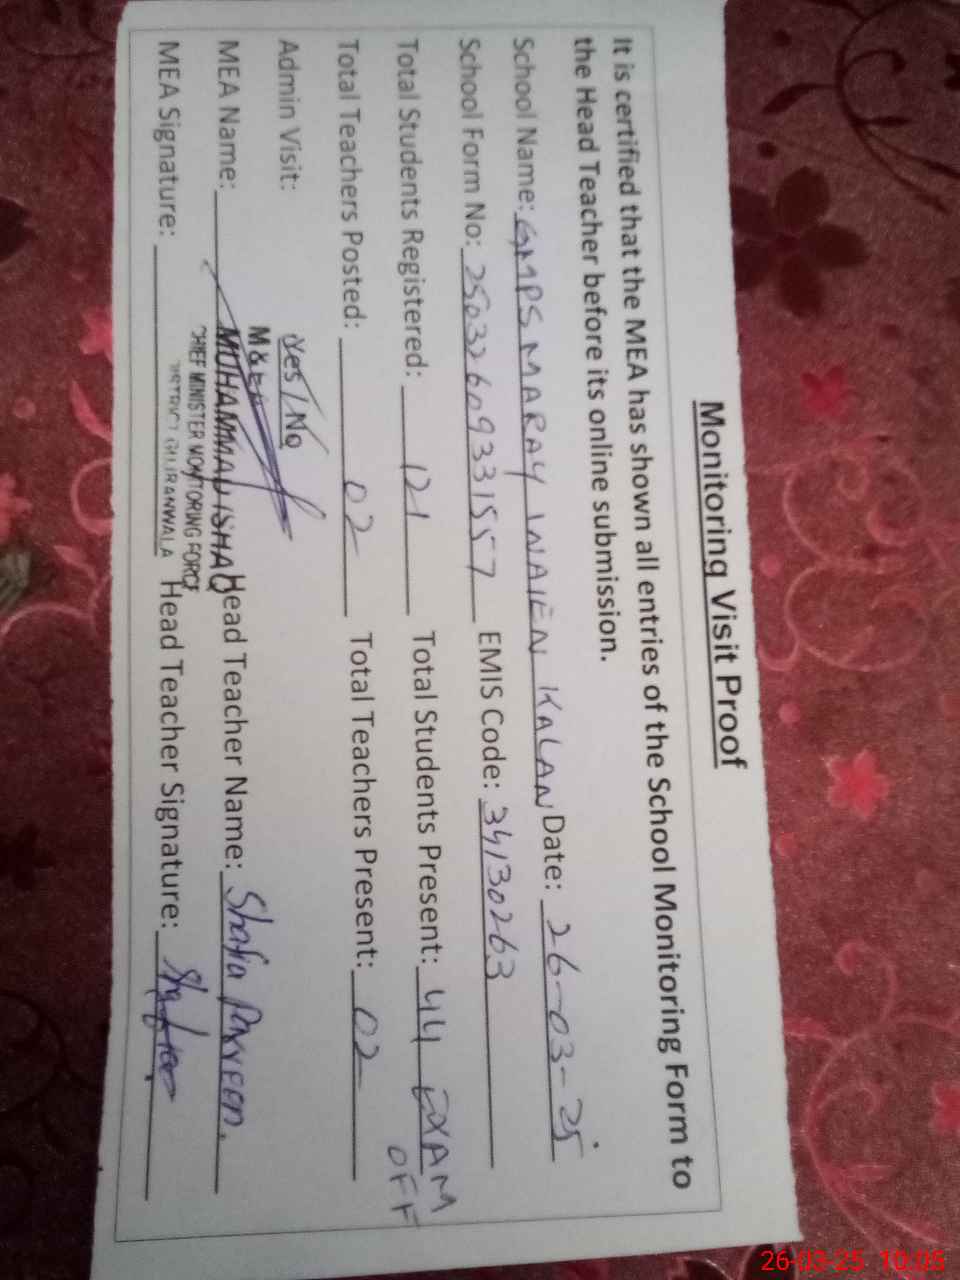 Monitoring Visit Proof
It is certified that the MEA has shown all entries of the School Monitoring Form to
the Head Teacher before its online submission.
School Name: GMPS MARAY WAIEN KALAN Date: 26-03-25
School Form No: 25032609331557 EMIS Code: 34130263
Total Students Registered: 121 Total Students Present: 44 EXAM OFF
Total Teachers Posted: 02 Total Teachers Present: 02
Admin Visit: Yes / No
MEA Name: MUHAMMAD ISHAQ Head Teacher Name: Shafia Parveen.
CHIEF MINISTER MONITORING FORCE
DISTRICT GUJRANWALA
MEA Signature: Head Teacher Signature: Shafia
26-03-25 10:05